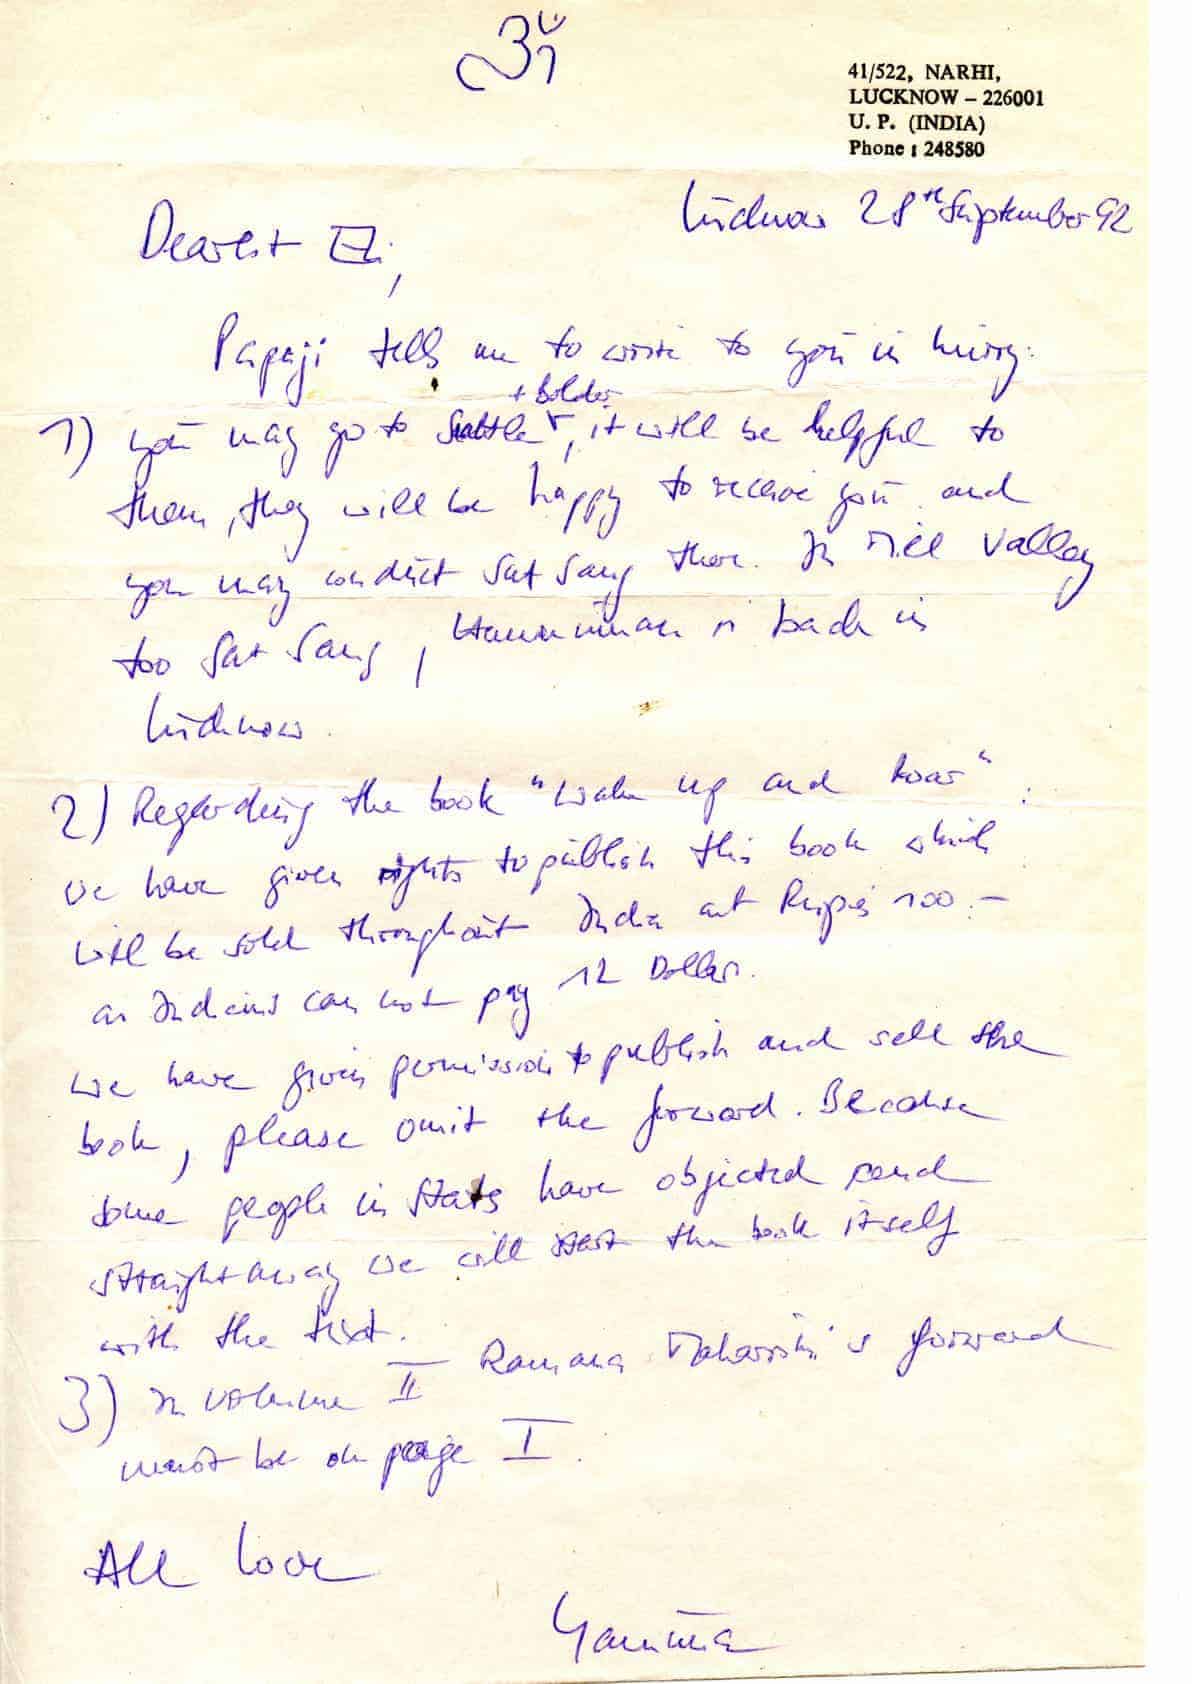 ॐ
41/522, NARHI,
LUCKNOW – 226001
U. P. (INDIA)
Phone : 248580
Lucknow 28th September 92
Dearest Eli,
Papaji tells me to write to you in hurry:
+ Bolder
1) you may go to Seattle, it will be helpful to
them, they will be happy to receive you and
you may conduct Sat Sang there. In Mill Valley
too Sat Sang, Hanuman is back in
Lucknow.
2) Regarding the book "Wake up and Roar":
we have given rights to publish this book which
will be sold throughout India at Rupies 100.-
as Indians can not pay 12 Dollars.
we have given permission to publish and sell the
book, please omit the forward. Because
some people in States have objected and
straight away we will start the book itself
with the text.
3) In volume II Ramana Maharshi's forward
must be on page I.
All Love
Yamuna